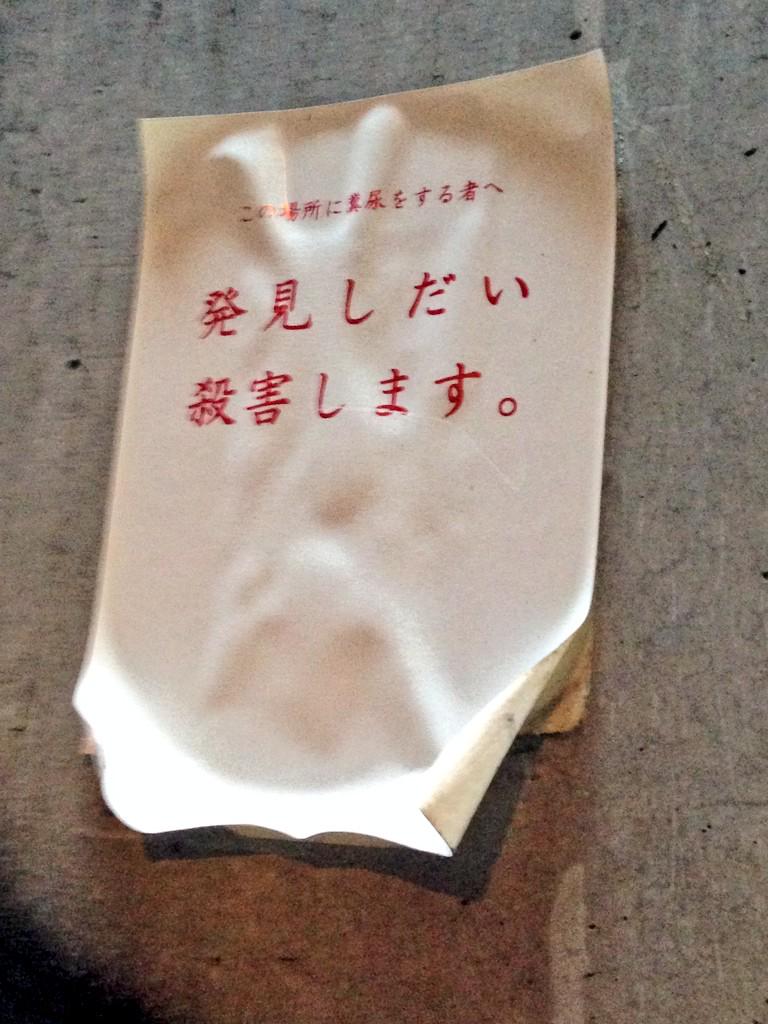 この場所に糞尿をする者へ
発見しだい
殺害します。